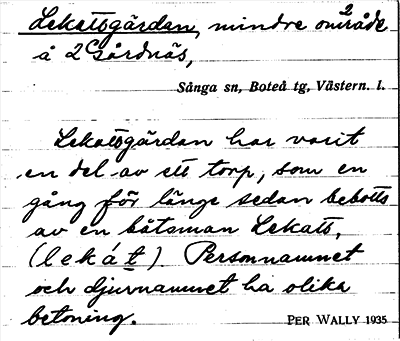 Lekattsgärdan, mindre område
å 2 Gårdnäs,
Sånga sn, Boteå tg, Västern. l.
Lekattsgärdan har varit
en del av ett torp, som en
gång för länge sedan bebotts
av en båtsman Lekatt,
(lekát). Personnamnet
och djurnamnet ha olika
betoning.
PER WALLY 1935